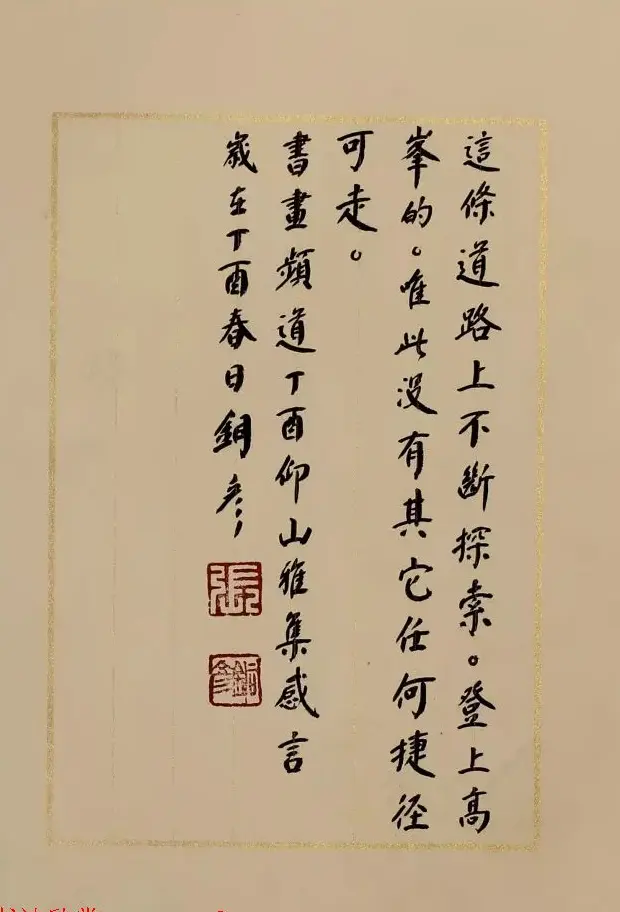 這條道路上不斷探索。登上高
峯的。唯此没有其它任何捷徑
可走。
書畫頻道丁酉仰山雅集感言
歲在丁酉春日銅彦
張